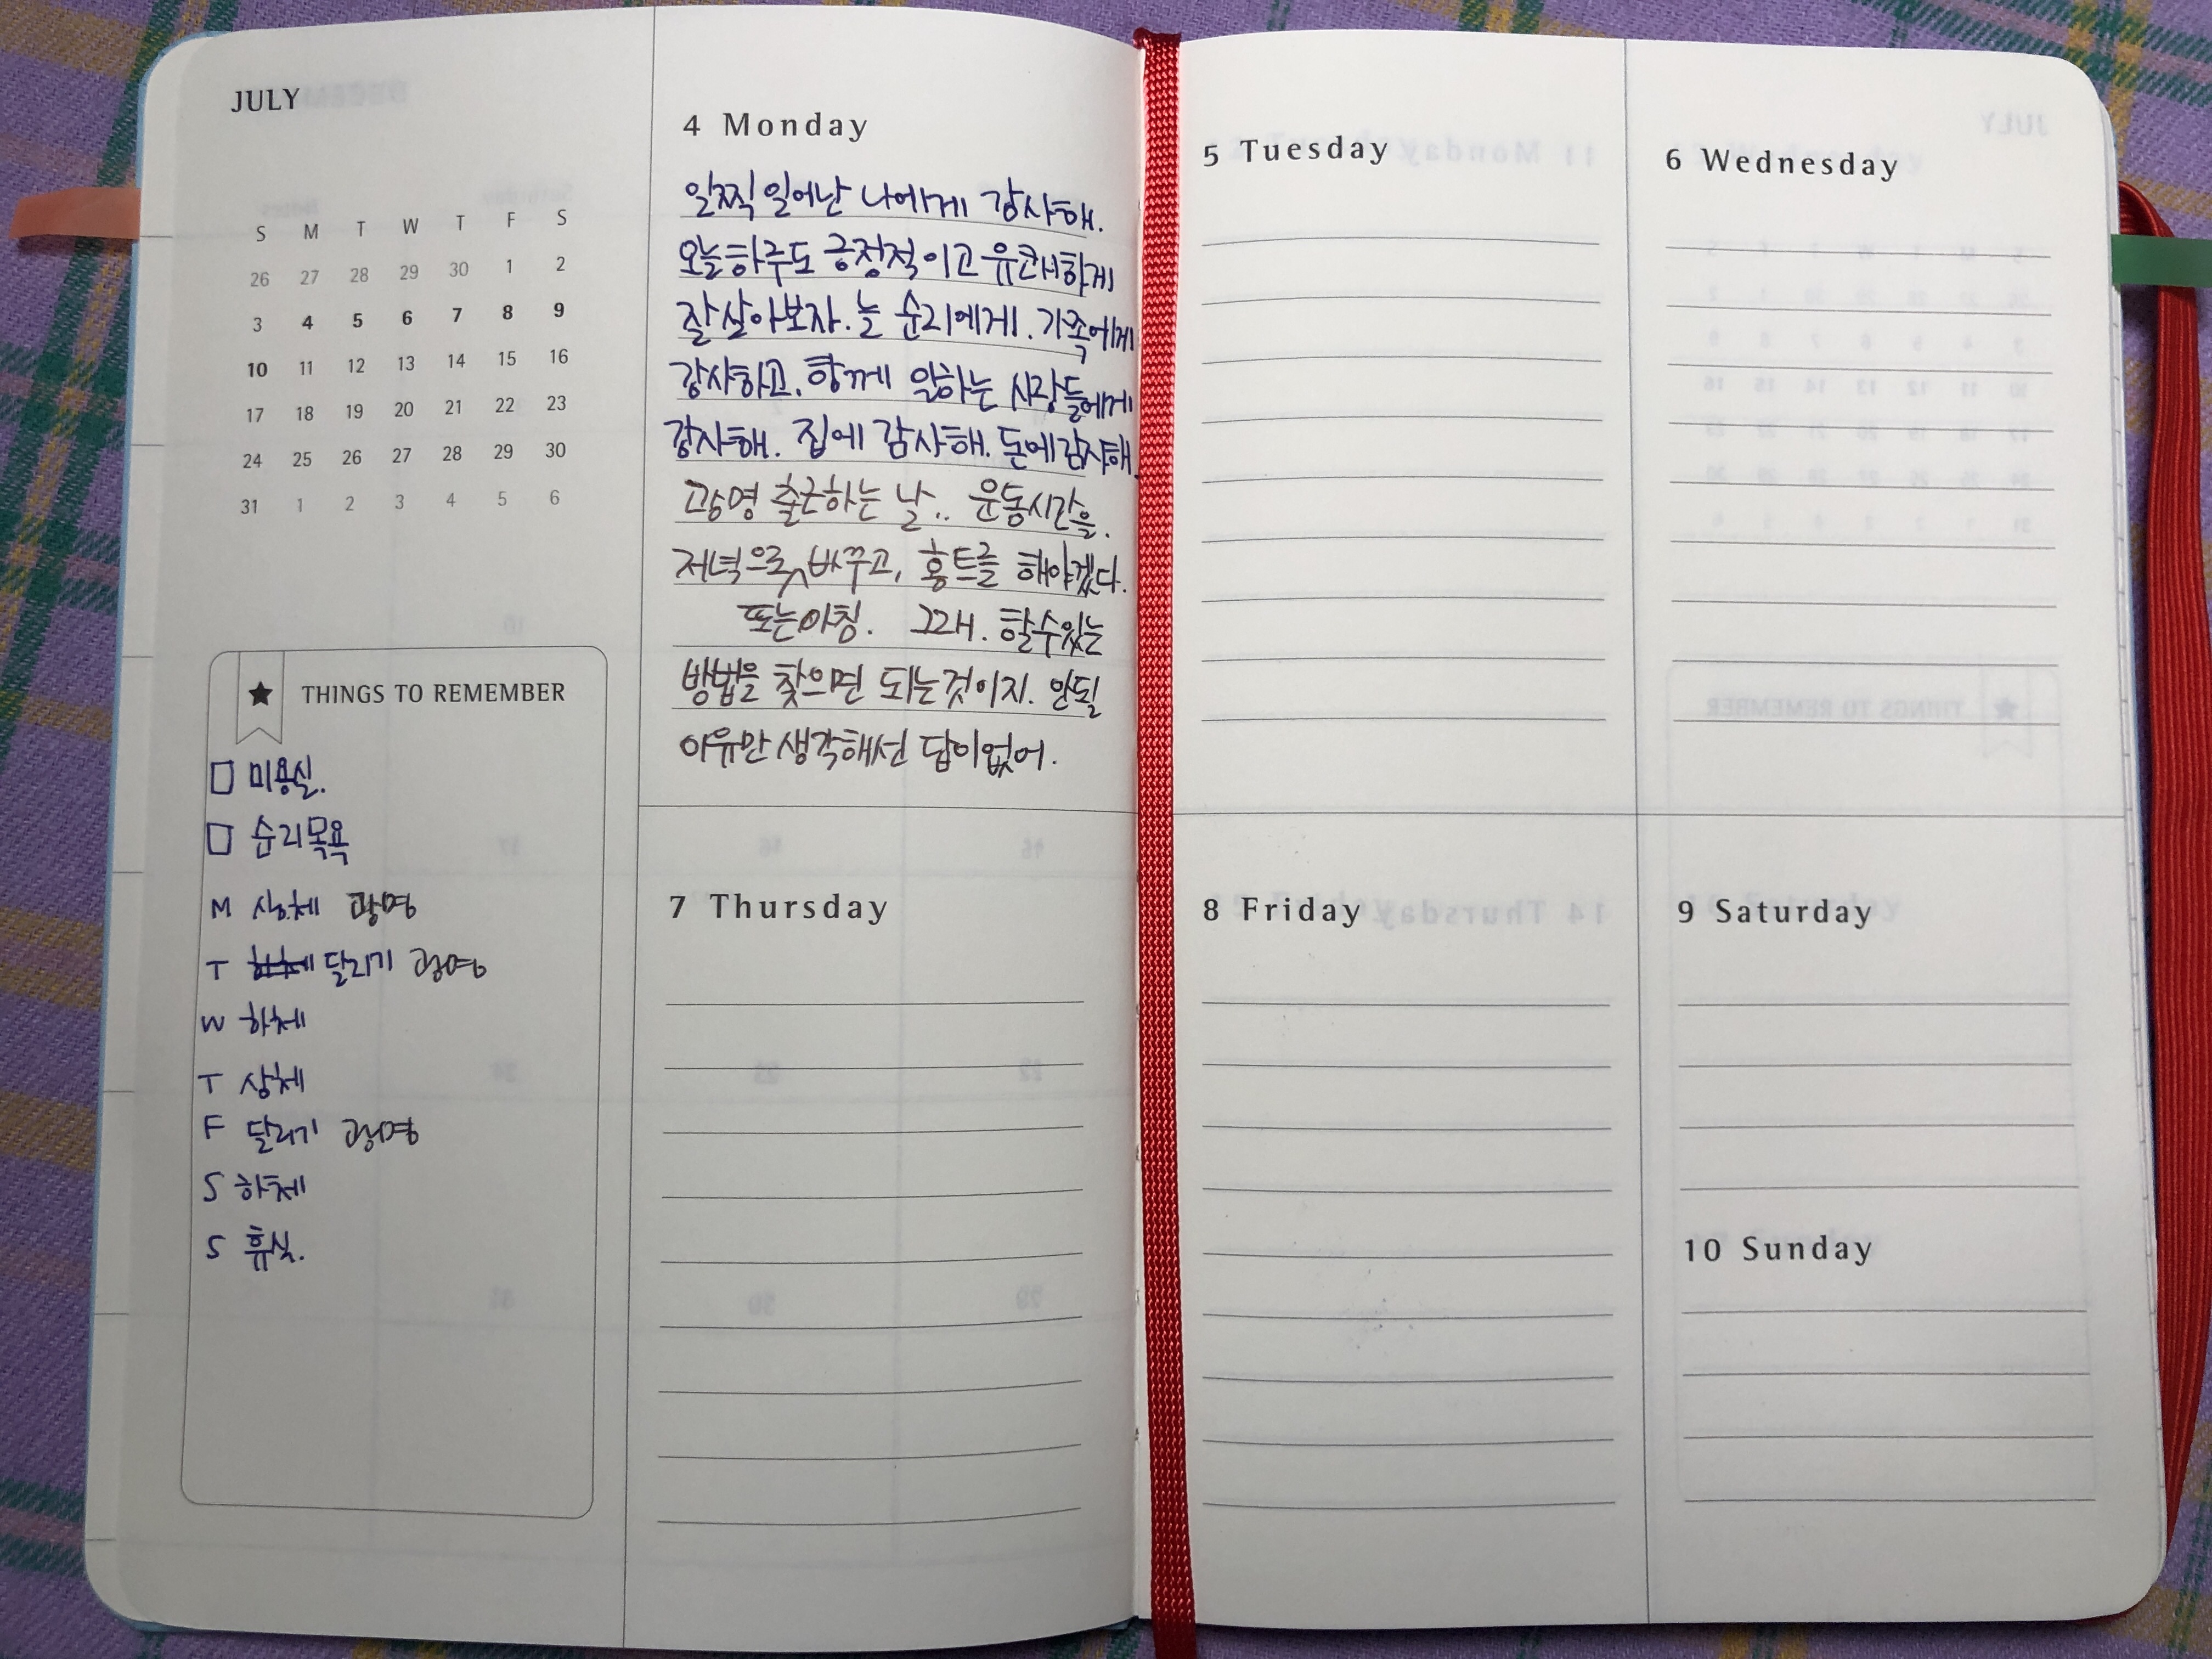 JULY
S M T W T F S
26 27 28 29 30 1 2
3 4 5 6 7 8 9
10 11 12 13 14 15 16
17 18 19 20 21 22 23
24 25 26 27 28 29 30
31 1 2 3 4 5 6
THINGS TO REMEMBER
미용실.
순리목욕
M 상체 광명
T 하체 달리기 광명
W 하체
T 상체
F 달리기 광명
S 하체
S 휴식.
4 Monday
일찍 일어난 나에게 감사해.
오늘 하루도 긍정적이고 유쾌하게
잘 살아보자. 늘 순리에게. 가족에게
감사하고, 함께 일하는 사람들에게
감사해. 집에 감사해. 돈에 감사해.
광명 출근하는 날.. 운동시간을.
저녁으로 바꾸고, 홈트를 해야겠다.
또는 아침. 그래. 할 수 있는
방법을 찾으면 되는 것이지. 안될
이유만 생각해선 답이 없어.
5 Tuesday
6 Wednesday
7 Thursday
8 Friday
9 Saturday
10 Sunday